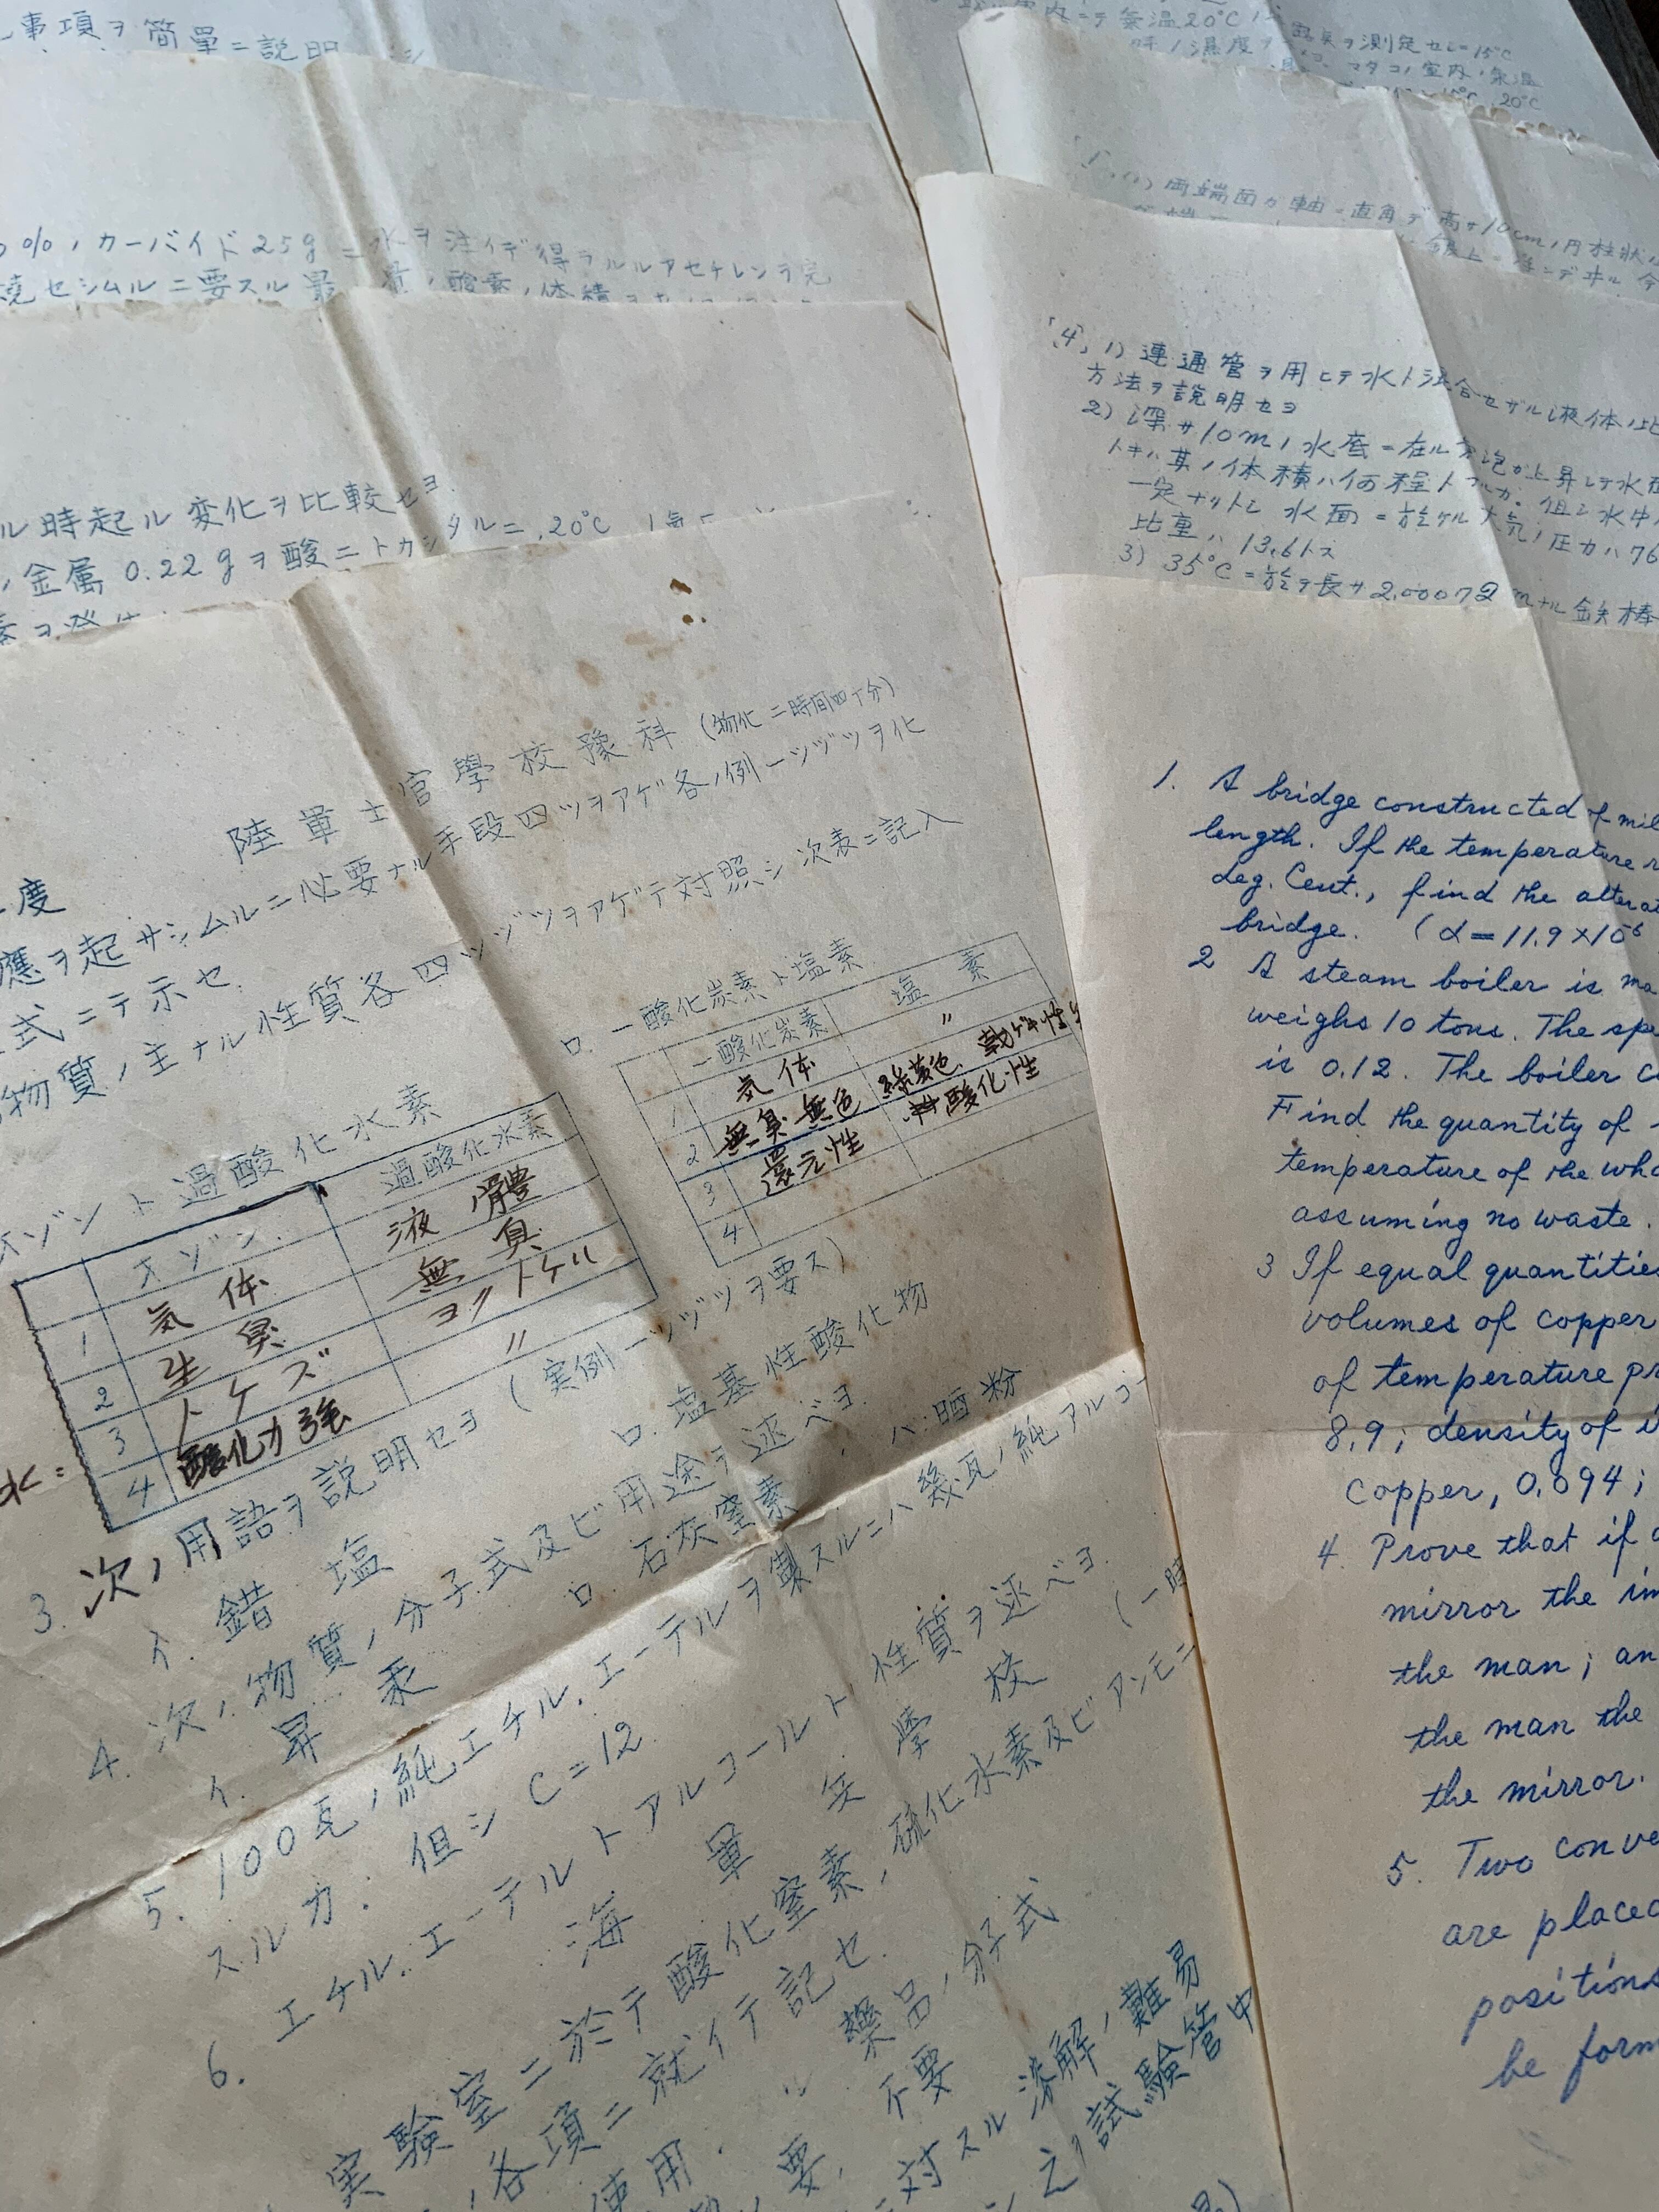 事項ヲ簡單ニ説明
室内ニテ氣温20°C
ヲ測定セシニ15°C
時ノ濕度
マタコノ室内ノ氣温
20°C
%ノカーバイド25gニ水ヲ注イデ得ラルルアセチレンヲ完
燒セシムルニ要スル最 量ノ酸素ノ体積
両端面ガ軸ニ直角デ高サ10cmノ円柱状
ル時起ル変化ヲ比較セヨ.
ノ金属0.22gヲ酸ニトカシタルニ, 20°C
素ヲ発生
〔4〕, 1) 連通管ヲ用ヒテ水ト混合セザル液体ノ比
方法ヲ説明セヨ
2) 深サ10mノ水底ニ在ル気泡ガ上昇シテ水面
トキハ其ノ体積ハ何程トナルカ. 但シ水中
一定ナリトシ水面ニ於ケル大気ノ圧力ハ76
比重ハ13.6トス
3) 35°Cニ於テ長サ2.00072mナル鉄棒
陸軍士官學校豫科 (物化二時間四十分)
度
應ヲ起サシムルニ必要ナル手段四ツヲアゲ各ノ例一ツヅツヲ化
式ニテ示セ.
物質ノ主ナル性質各四ツヅツヲアゲテ対照シ次表ニ記入
オゾント過酸化水素
オゾン. 過酸化水素
1 気体 液體
2 生臭 無臭
3 トケズ ヨクトケル
4 酸化力強 〃
ロ. 一酸化炭素ト塩素
一酸化炭素 塩素
1 気体 〃
2 無臭無色 緑黄色 刺ゲキ性
3 還元性 酸化性
4
3. 次ノ用語ヲ説明セヨ (実例一ツヅツヲ要ス)
イ. 錯塩 ロ. 塩基性酸化物
4. 次ノ物質ノ分子式及ビ用途ヲ述ベヨ.
イ. 昇汞 ロ. 石灰窒素, ハ. 晒粉
5. 100瓦ノ純エチル.エーテルヲ製スルニハ幾瓦ノ純アルコー
スルカ. 但シ C=12.
6. エチル.エーテルトアルコールト性質ヲ述ベヨ.
海軍兵學校 (一時
実験室ニ於テ酸化窒素, 硫化水素及ビアンモニ
各項ニ就イテ記セ.
使用 薬品ノ分子式
要, 不要
対スル溶解ノ難易
之ヲ試験管中
1. A bridge constructed of mil
length. If the temperature r
deg. Cent., find the alterat
bridge. (α=11.9×10⁶
2 A steam boiler is ma
weighs 10 tons. The spe
is 0.12. The boiler co
Find the quantity of
temperature of the who
assuming no waste.
3 If equal quantities
volumes of copper
of temperature pr
8.9; density of i
copper, 0.094;
4. Prove that if a
mirror the im
the man; an
the man the
the mirror.
5. Two conve
are placed
positions
be form